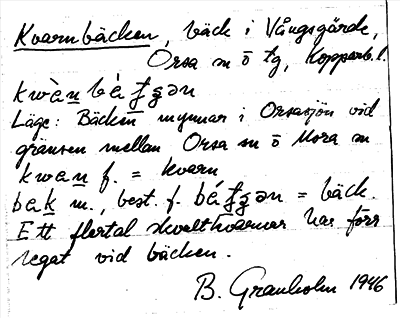 Kvarnbäcken, bäck i Vångsgärde,
Orsa sn o tg, Kopparb. l.
kwὲn bὲʈʂən
Läge: Bäcken mynnar i Orsasjön vid
gränsen mellan Orsa sn o Mora sn
kwæn f. = kvarn
bæk m., best. f. bέʈʂən = bäck.
Ett flertal skvaltkvarnar har förr
legat vid bäcken.
B. Granholm 1946